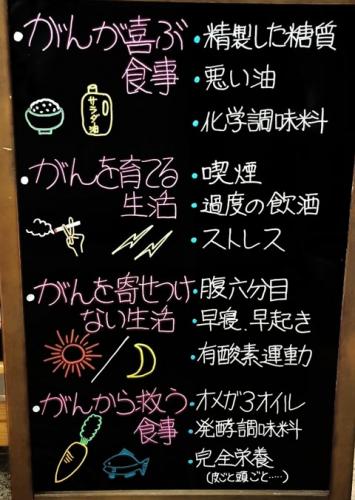 ・がんが喜ぶ
食事
サラダ油
・精製した糖質
・悪い油
・化学調味料
・がんを育てる
生活
・喫煙
・過度の飲酒
・ストレス
・がんを寄せつけ
ない生活
・腹六分目
・早寝.早起き
・有酸素運動
・がんから救う
食事
・オメガ3オイル
・発酵調味料
・完全栄養
(皮ごと頭ごと.....)